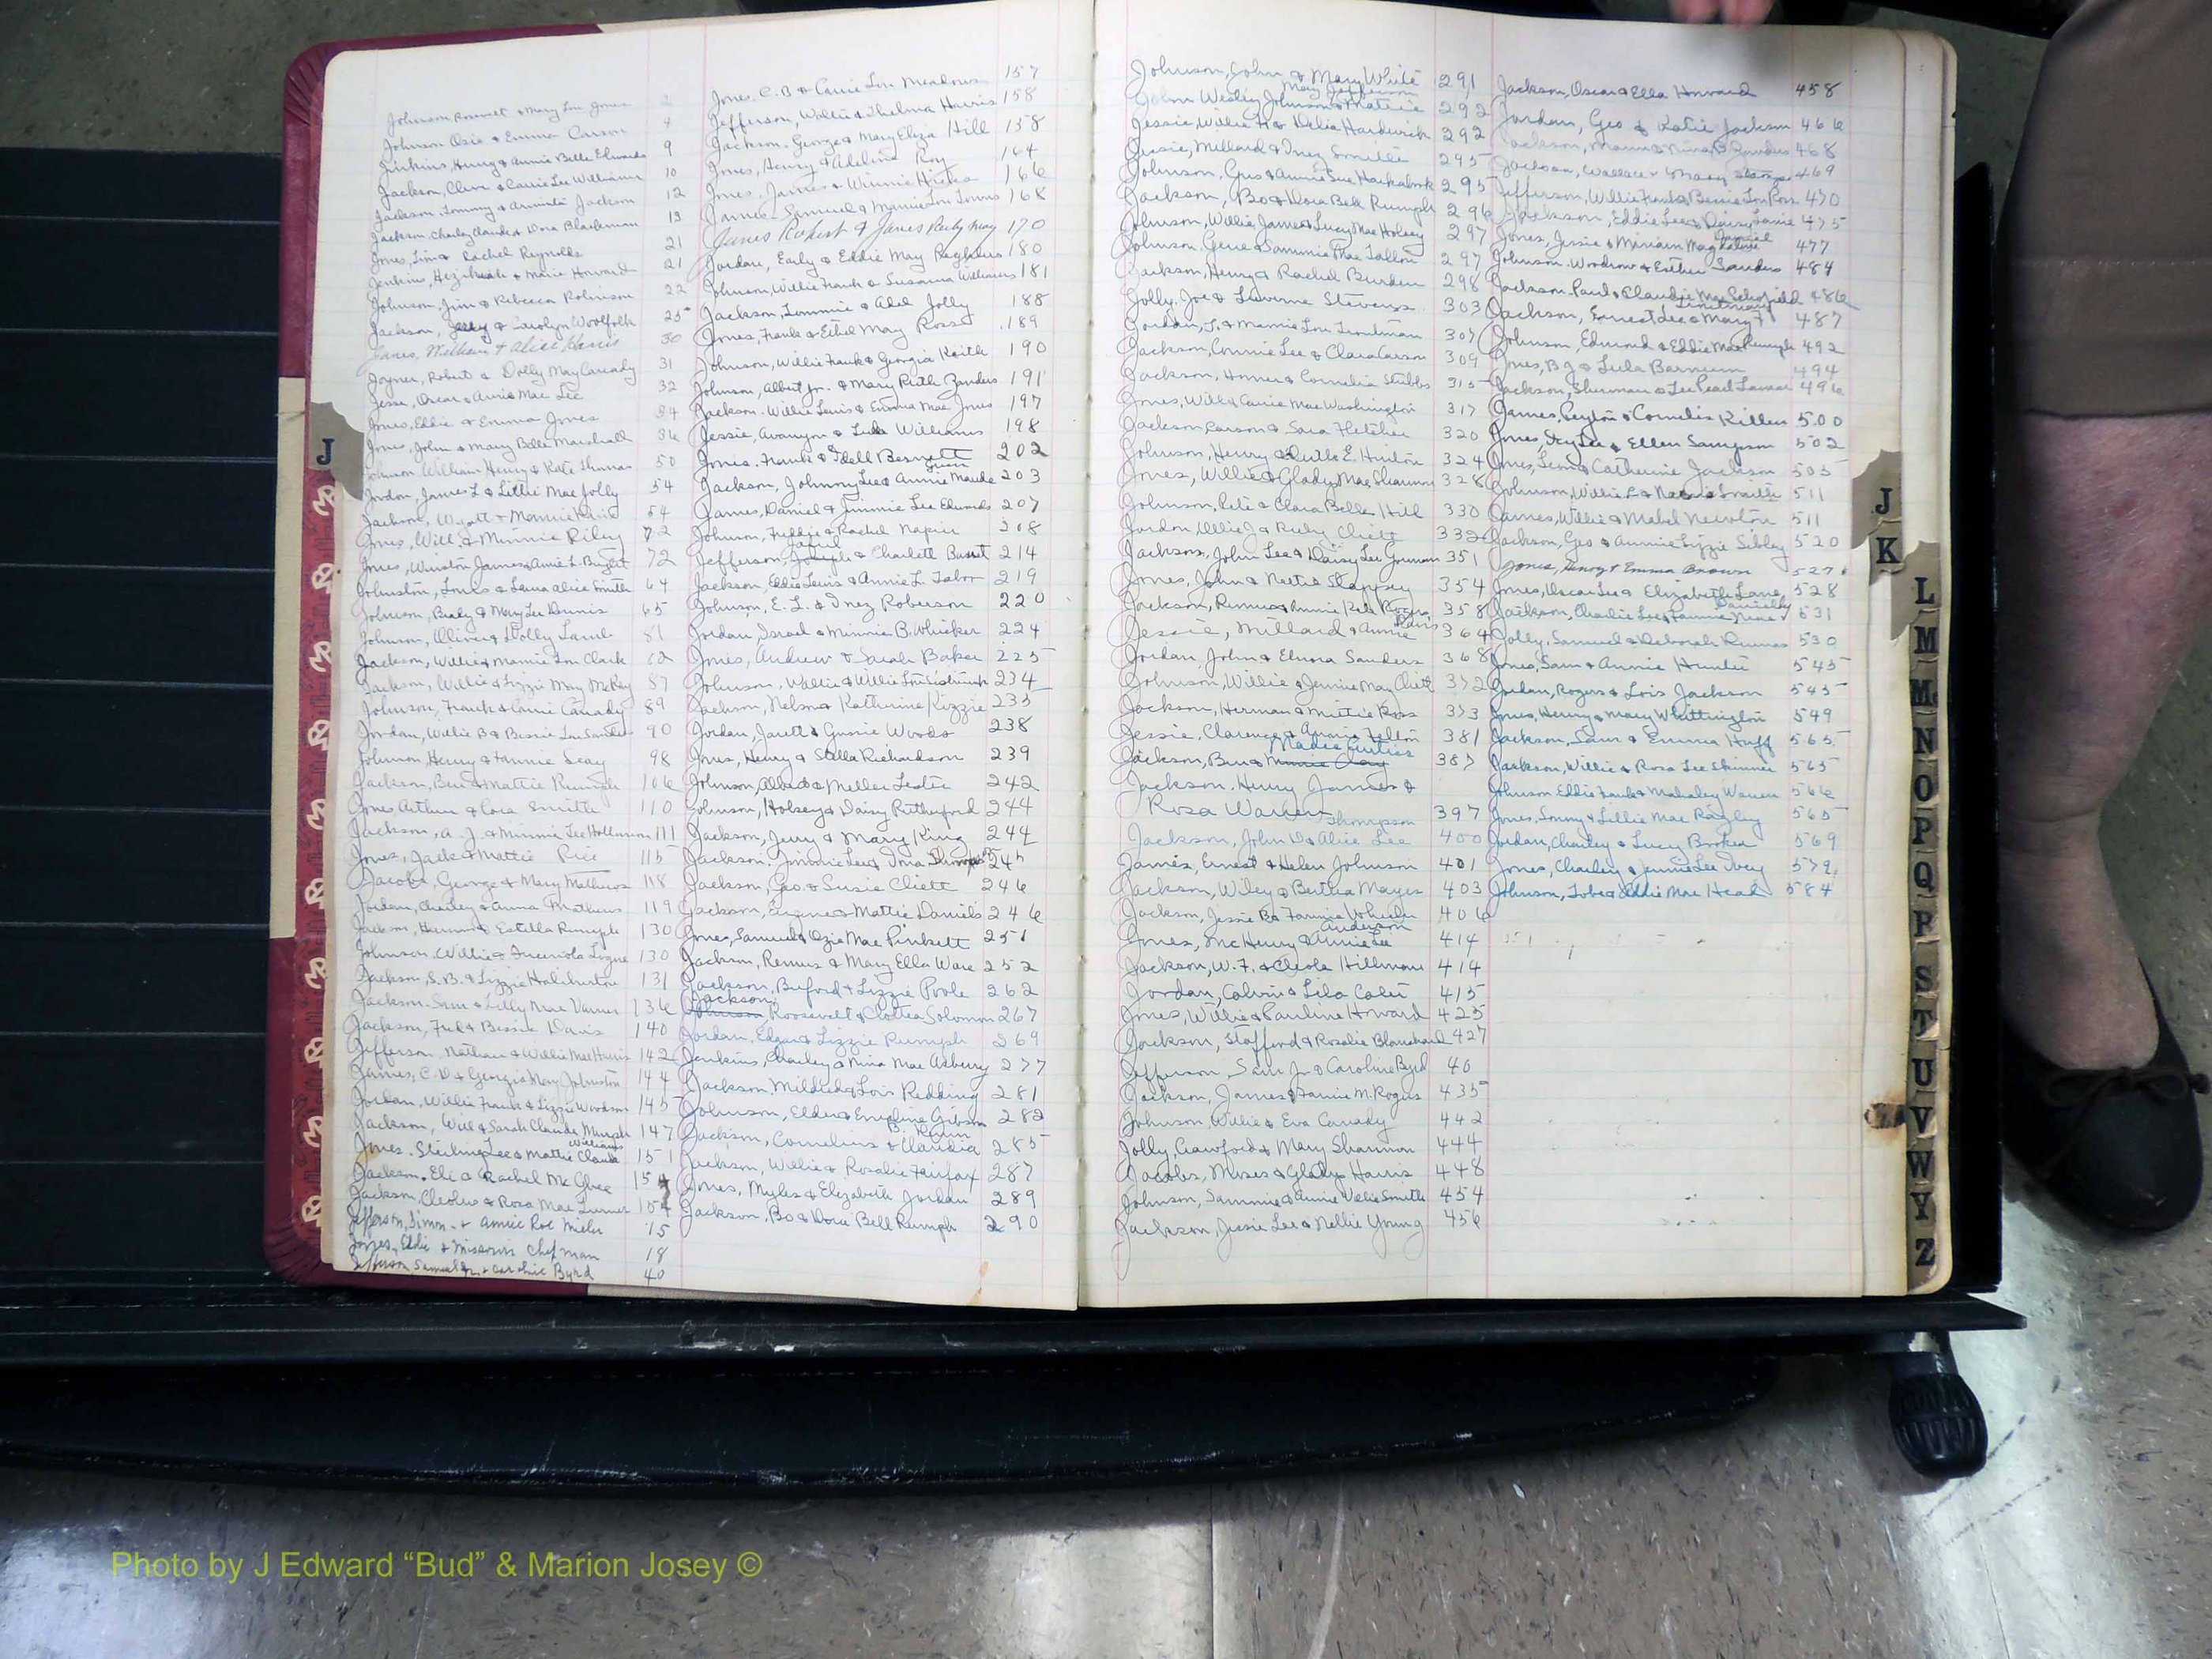 Johnson, Roosevelt & Mary Lou Jones 2
Johnson Osie & Emma Carson 4
Jenkins, Henry & Annie Belle Edwards 9
Jackson, Cleve & Carrie Lee Williams 10
Jackson, Tommy & Jackson 12
Jackson Charley Claude & Dora Blackmon 13
Jones, Jim & Rachel Reynolds 21
Jenkins, Hezikiah & Marie Howard 21
Johnson, Jim & Rebecca Robinson 22
Jackson, & Carolyn Woolfolk 25
Janes, William & Alice Harris 30
Joyner, Robert & Dolly May Canady 31
Jesse, Oscar & Annie Mae Lee 32
Jones, Eddie & Emma Jones 34
Jones, John & Mary Belle Marshall 36
Johnson, William Henry & Kate 50
Jordon, James L & Lillie Mae Jolly 54
Jackson, Wyatt & Mamie 54
Jones, Will & Minnie Riley 72
Jones, Winston James & Annie L. Bright 72
Johnston, Louis & Lena Alice Smith 64
Johnson, Brady & Mary Lee Dennis 65
Johnson, Oliver & Dolly Lamb 81
Jackson, Willie & Mamie Lou Clark 82
Jackson, Willie & Lizzie May McRay 87
Johnson, Frank & Carrie Canady 89
Jordan, Willie B & Bessie Lou Sanders 90
Johnson, Henry & Fannie Seay 98
Jackson, Ben & Mattie Rumph 106
Jones, Arthur & Cora Smith 110
Jackson, A. J. & Minnie Lee Hollman 111
Jones, Jack & Mattie Rice 115
Jacobs, George & Mary Mathews 118
Jordan, Charley & Anna Mathews 119
Jackson, Herman & Estella Rumph 130
Johnson, Willie & Logue 130
Jackson, S. B. & Lizzie Haliburton 131
Jackson, Sam & Lilly Mae Varner 136
Jackson, & Bessie Davis 140
Jefferson, Nathan & Willie Mae Harris 142
James, C. D & Georgia May Johnston 144
Jordan, Willie Frank & Lizzie Woodson 145
Jackson, Will & Sarah Claude Murph 147
Williams
Jones, Sterling Lee & Mattie Claude 151
Jackson, Eli & Rachel McGhee 154
Jackson, Cleolus & Rosa Mae Turner 154
Jefferson, Simon & Annie Roe Miller 15
Jones, Eddie & Missouri Chipman 18
Jefferson, Samuel Jr. & Caroline Byrd 40
Jones, C. B & Carrie Lou Meadows 157
Jefferson, Willie & Thelma Harris 158
Jackson, George & Mary Eliza Hill 158
Jones, Henry & Adeline Roy 164
Jones, James & Winnie Hicks 166
James, Samuel & Mamie Lou Towns 168
Janes Robert & Janes Ruby May 170
Jordan, Early & Eddie May 180
Johnson, Willie Frank & Susanna Williams 181
Jackson, Lommie & Adel Jolly 188
Jones, Frank & Ethel May Ross 189
Johnson, Willie Frank & Georgia Keith 190
Johnson, Albert Jr. & Mary Ruth Zanders 191
Jackson, Willie Lewis & Emma Mae Jones 197
Jessie, & Lula Williams 198
Jones, Frank & Idell Bennett 202
Jackson, Johnny Lee & Annie Maude 203
James, Daniel & Jimmie Lee Edwards 207
Johnson, Freddie & Rachel Napier 208
Jefferson, Joseph & Charlett Bassett 214
Jackson, Eddie Lewis & Annie L. Tabor 219
Johnson, E. L. & Inez Roberson 220
Jordan, Israel & Minnie B. Whicker 224
Jones, Andrew & Sarah Baker 225
Johnson, Wallie & Willie Lou 234
Jackson, Nelson & Katherine Kizzie 235
Jordan, Jarett & Gussie Woods 238
Jones, Henry & Stella Richardson 239
Johnson, Albert & Meller Lester 242
Johnson, Holsey & Daisy Rutherford 244
Jackson, Jerry & Mary King 244
Jackson, Jimmie Lee & Dora 245
Jackson, Geo & Susie Cliett 246
Jackson, Eugene & Mattie Daniels 246
Jones, Samuel & Ozie Mae Pinkett 251
Jackson, Remus & Mary Ella Ware 252
Jackson, Buford & Lizzie Poole 262
Jackson,
Johnson, Roosevelt & Clottea Solomon 267
Jordan, Edgar & Lizzie Rumph 269
Jenkins, Charley & Nina Mae Asberry 277
Jackson, Mildred & Lois Redding 281
Johnson, Elder & Emoline Gibson 282
Jackson, Cornelius & Claudia 285
Jackson, Willie & Rosalie Fairfax 287
Jones, Myles & Elizabeth Jordan 289
Jackson, Bo & Dora Bell Rumph 290
Johnson, John & Mary White 291
Mary Jefferson
John Wesley Johnson & Mattie 292
Jessie, Willie H & Delia Hardwick 292
Jessie, Millard & Inez Smith 295
Johnson, Gus & Annie Sue Huckabook 295
Jackson, Bo & Dora Bell Rumph 296
Johnson, Willie James & Lucy Mae Holsey 297
Johnson, Gene & Sammie Mae Tallon 297
Jackson, Henry & Rachel Burden 298
Jolly, Joe & Luverne Stevens 303
Jordan, J. & Mamie Lou Troutman 307
Jackson, Connie Lee & Clara Carson 309
Jackson, Homer & Cornelia Stubbs 315
Jones, Will & Carrie Mae Washington 317
Jackson, Carson & Sara Fletcher 320
Johnson, Henry & Ruth E. Hinton 324
Jones, Willie & Gladys Mae Shannon 328
Johnson, Pete & Clara Belle Hill 330
Jordon, Willie J & Ruby Cliett 332
Jackson, John Lee & Daisy Lee Gorman 351
Jones, John & Nettie Slappey 354
Jackson, Remus & Annie Kate Rogers 358
Davis
Jessie, Millard & Annie 364
Jordan, John & Elnora Sanders 368
Johnson, Willie & Jennie May Cliett 372
Jackson, Herman & Mittie Ross 373
Jessie, Clarence & Annie Felton 381
Madie Curties
Jackson, Ben & Minnie Clay 387
Jackson, Henry James &
Rosa Warren 397
Thompson
Jackson, John D & Alice Lee 400
James, Ernest & Helen Johnson 401
Jackson, Wiley & Bertha Mayes 403
Jackson, Jessie B & Fannie Wheeler 406
Anderson
Jones, McHenry & Annie Lee 414
Jackson, W. F. & Cleola Hillman 414
Jordan, Calvin & Lila Calier 415
Jones, Willie & Pauline Howard 425
Jackson, Stafford & Rosalie Blanchard 427
Jefferson, Sam Jr. & Caroline Byrd 40
Jackson, James & Fannie M. Rogers 435
Johnson, Willie & Eva Canady 442
Jolly, Crawford & Mary Shannon 444
Jacobs, Moses & Gladys Harris 448
Johnson, Sammie & Annie Smith 454
Jackson, Jessie Lee & Nellie Young 456
Jackson, Oscar & Ella Howard 458
Jordan, Geo & Katie Jackson 466
Jackson, & Nina B Zanders 468
Jackson, Wallace & Mary 469
Jefferson, Willie Frank & Bessie Lou Ross 470
Jackson, Eddie Lee & Daisy 475
Jones, Jessie & Miriam Magdaline 477
Johnson, Woodrow & Esther Sanders 484
Jackson, Paul & Claudie Mae Schofield 486
Jackson, Ernest Lee & Mary F. 487
Johnson, Edmond & Eddie Mae Rumph 492
Jones, B J & Lula Barnum 494
Jackson, Sherman & Lee Pearl Lamar 496
James, Peyton & Cornelia Killen 500
Jones, Icy Lee & Ellen Sampson 502
Jones, Leon & Catherine Jackson 505
Johnson, Willie L & Smith 511
James, Willie & Mabel Newton 511
Jackson, Geo & Annie Lizzie Sibley 520
Jones, Henry & Emma Brown 527
Jones, Oscar Lee & Elizabeth Lane 528
Jackson, Charlie Lee & Fannie Mae 531
Jolly, Samuel & Deborah 530
Jones, Sam & Annie Hunter 545
Jordan, Rogers & Lois Jackson 545
Jones, Henry & Mary Whittington 549
Jackson, Sam & Emma Huff 565
Jackson, Willie & Rosa Lee Skinner 565
Johnson, Eddie Frank & Mahaley Warren 566
Jones, Tommy & Lillie Mae Ragley 565
Jordan, Charley & Lucy Broken 569
Jones, Charley & Jennie Lee Ivey 579
Johnson, Tobe & Eddie Mae Head 584
J
J
K
L
M
Mc
N
O
P
Q
R
S
T
U
V
W
Y
Z
Photo by J Edward “Bud” & Marion Josey ©